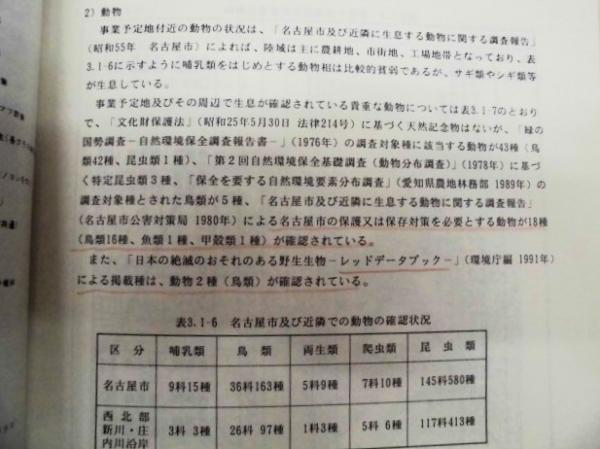 2) 動物
事業予定地付近の動物の状況は、「名古屋市及び近隣に生息する動物に関する調査報告」
(昭和55年 名古屋市)によれば、陸域は主に農耕地、市街地、工場地帯となっており、表
3.1-6に示すように哺乳類をはじめとする動物相は比較的貧弱であるが、サギ類やシギ類等
が生息している。
事業予定地及びその周辺で生息が確認されている貴重な動物については表3.1-7のとおり
で、「文化財保護法」(昭和25年5月30日 法律214号)に基づく天然記念物はないが、「緑の
国勢調査-自然環境保全調査報告書-」(1976年)の調査対象種に該当する動物が43種(鳥
類42種、昆虫類1種)、「第2回自然環境保全基礎調査(動物分布調査)」(1978年)に基づ
く特定昆虫類3種、「保全を要する自然環境要素分布調査」(愛知県農地林務部 1989年)の
調査対象種とされた鳥類が5種、「名古屋市及び近隣に生息する動物に関する調査報告」
(名古屋市公害対策局 1980年)による名古屋市の保護又は保存対策を必要とする動物が18種
(鳥類16種、魚類1種、甲殻類1種)が確認されている。
また、「日本の絶滅のおそれのある野生生物-レッドデータブック-」(環境庁編 1991年)
による掲載種は、動物2種(鳥類)が確認されている。
表3.1-6 名古屋市及び近隣での動物の確認状況
区分 哺乳類 鳥類 両生類 爬虫類 昆虫類
名古屋市 9科15種 36科163種 5科9種 7科10種 145科580種
西北部
新川・庄 3科 3種 26科 97種 1科3種 5科 6種 117科413種
内川沿岸